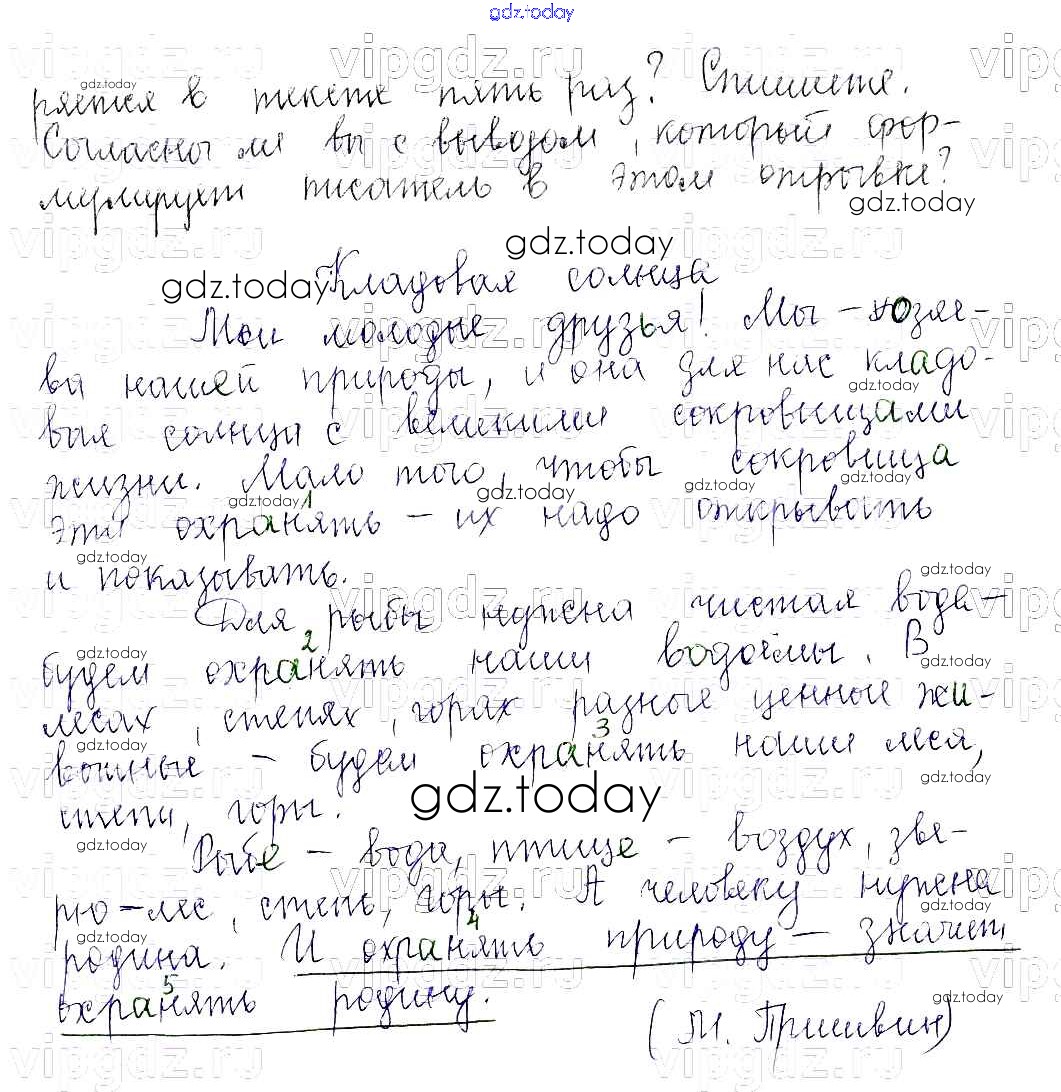 gdz.today
ряется в тексте пять раз? Спишите.
Согласны ли вы с выводом, который фор-
мулирует писатель в этом отрывке?
Кладовая солнца
Мои молодые друзья! Мы – хозяе-
ва нашей природы, и она для нас кладо-
вая солнца с великими сокровищами
жизни. Мало того, чтобы сокровища
эти охранять¹ – их надо открывать
и показывать.
Для рыбы нужена чистая вода –
будем охранять² наши водоёмы. В
лесах, степях, горах разные ценные жи-
вотные – будем охранять³ наши леса,
степи, горы.
Рыбе – вода, птице – воздух, зве-
рю – лес, степь, горы. А человеку нужена
родина. И охранять⁴ природу – значит,
охранять⁵ родину.
(М. Пришвин)